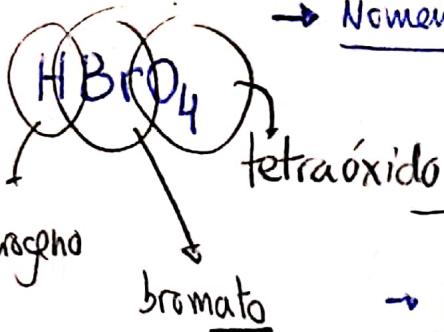 → Nomen
HBrO₄
tetraóxido
rogeno
bromato
→